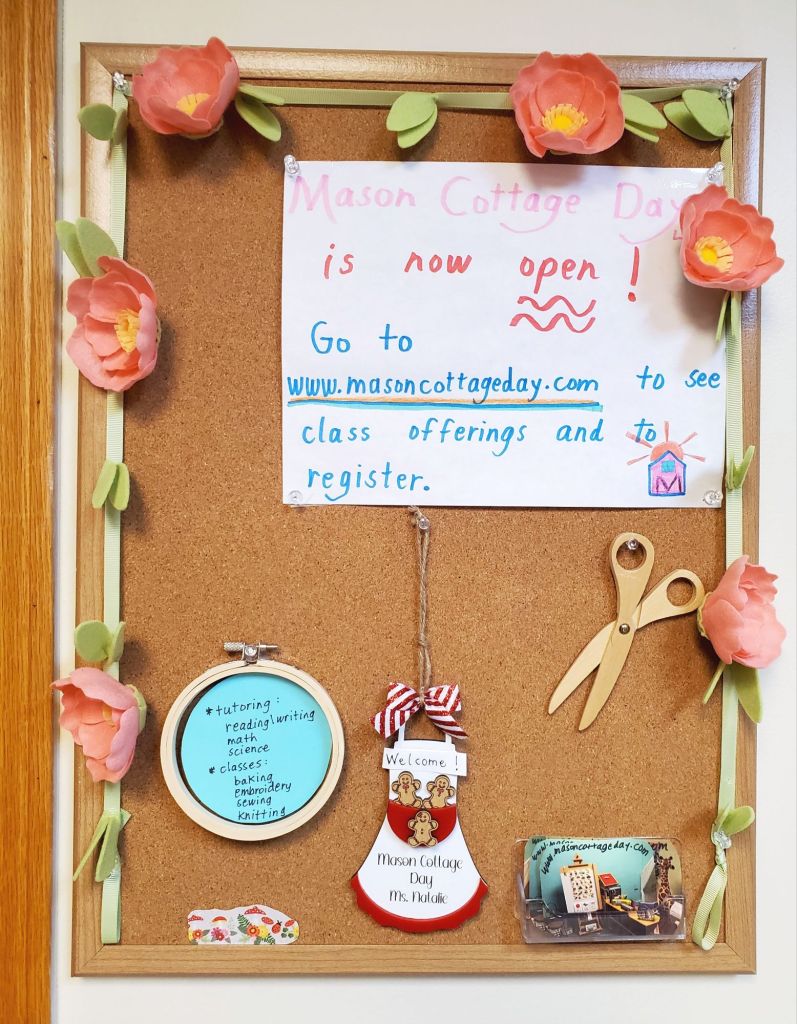 Mason Cottage Day
is now open !
Go to
www.masoncottageday.com to see
class offerings and to
register.
* tutoring :
reading\writing
math
science
* classes:
baking
embroidery
sewing
knitting
Welcome !
Mason Cottage
Day
Ms. Natalie
www.masoncottageday.com